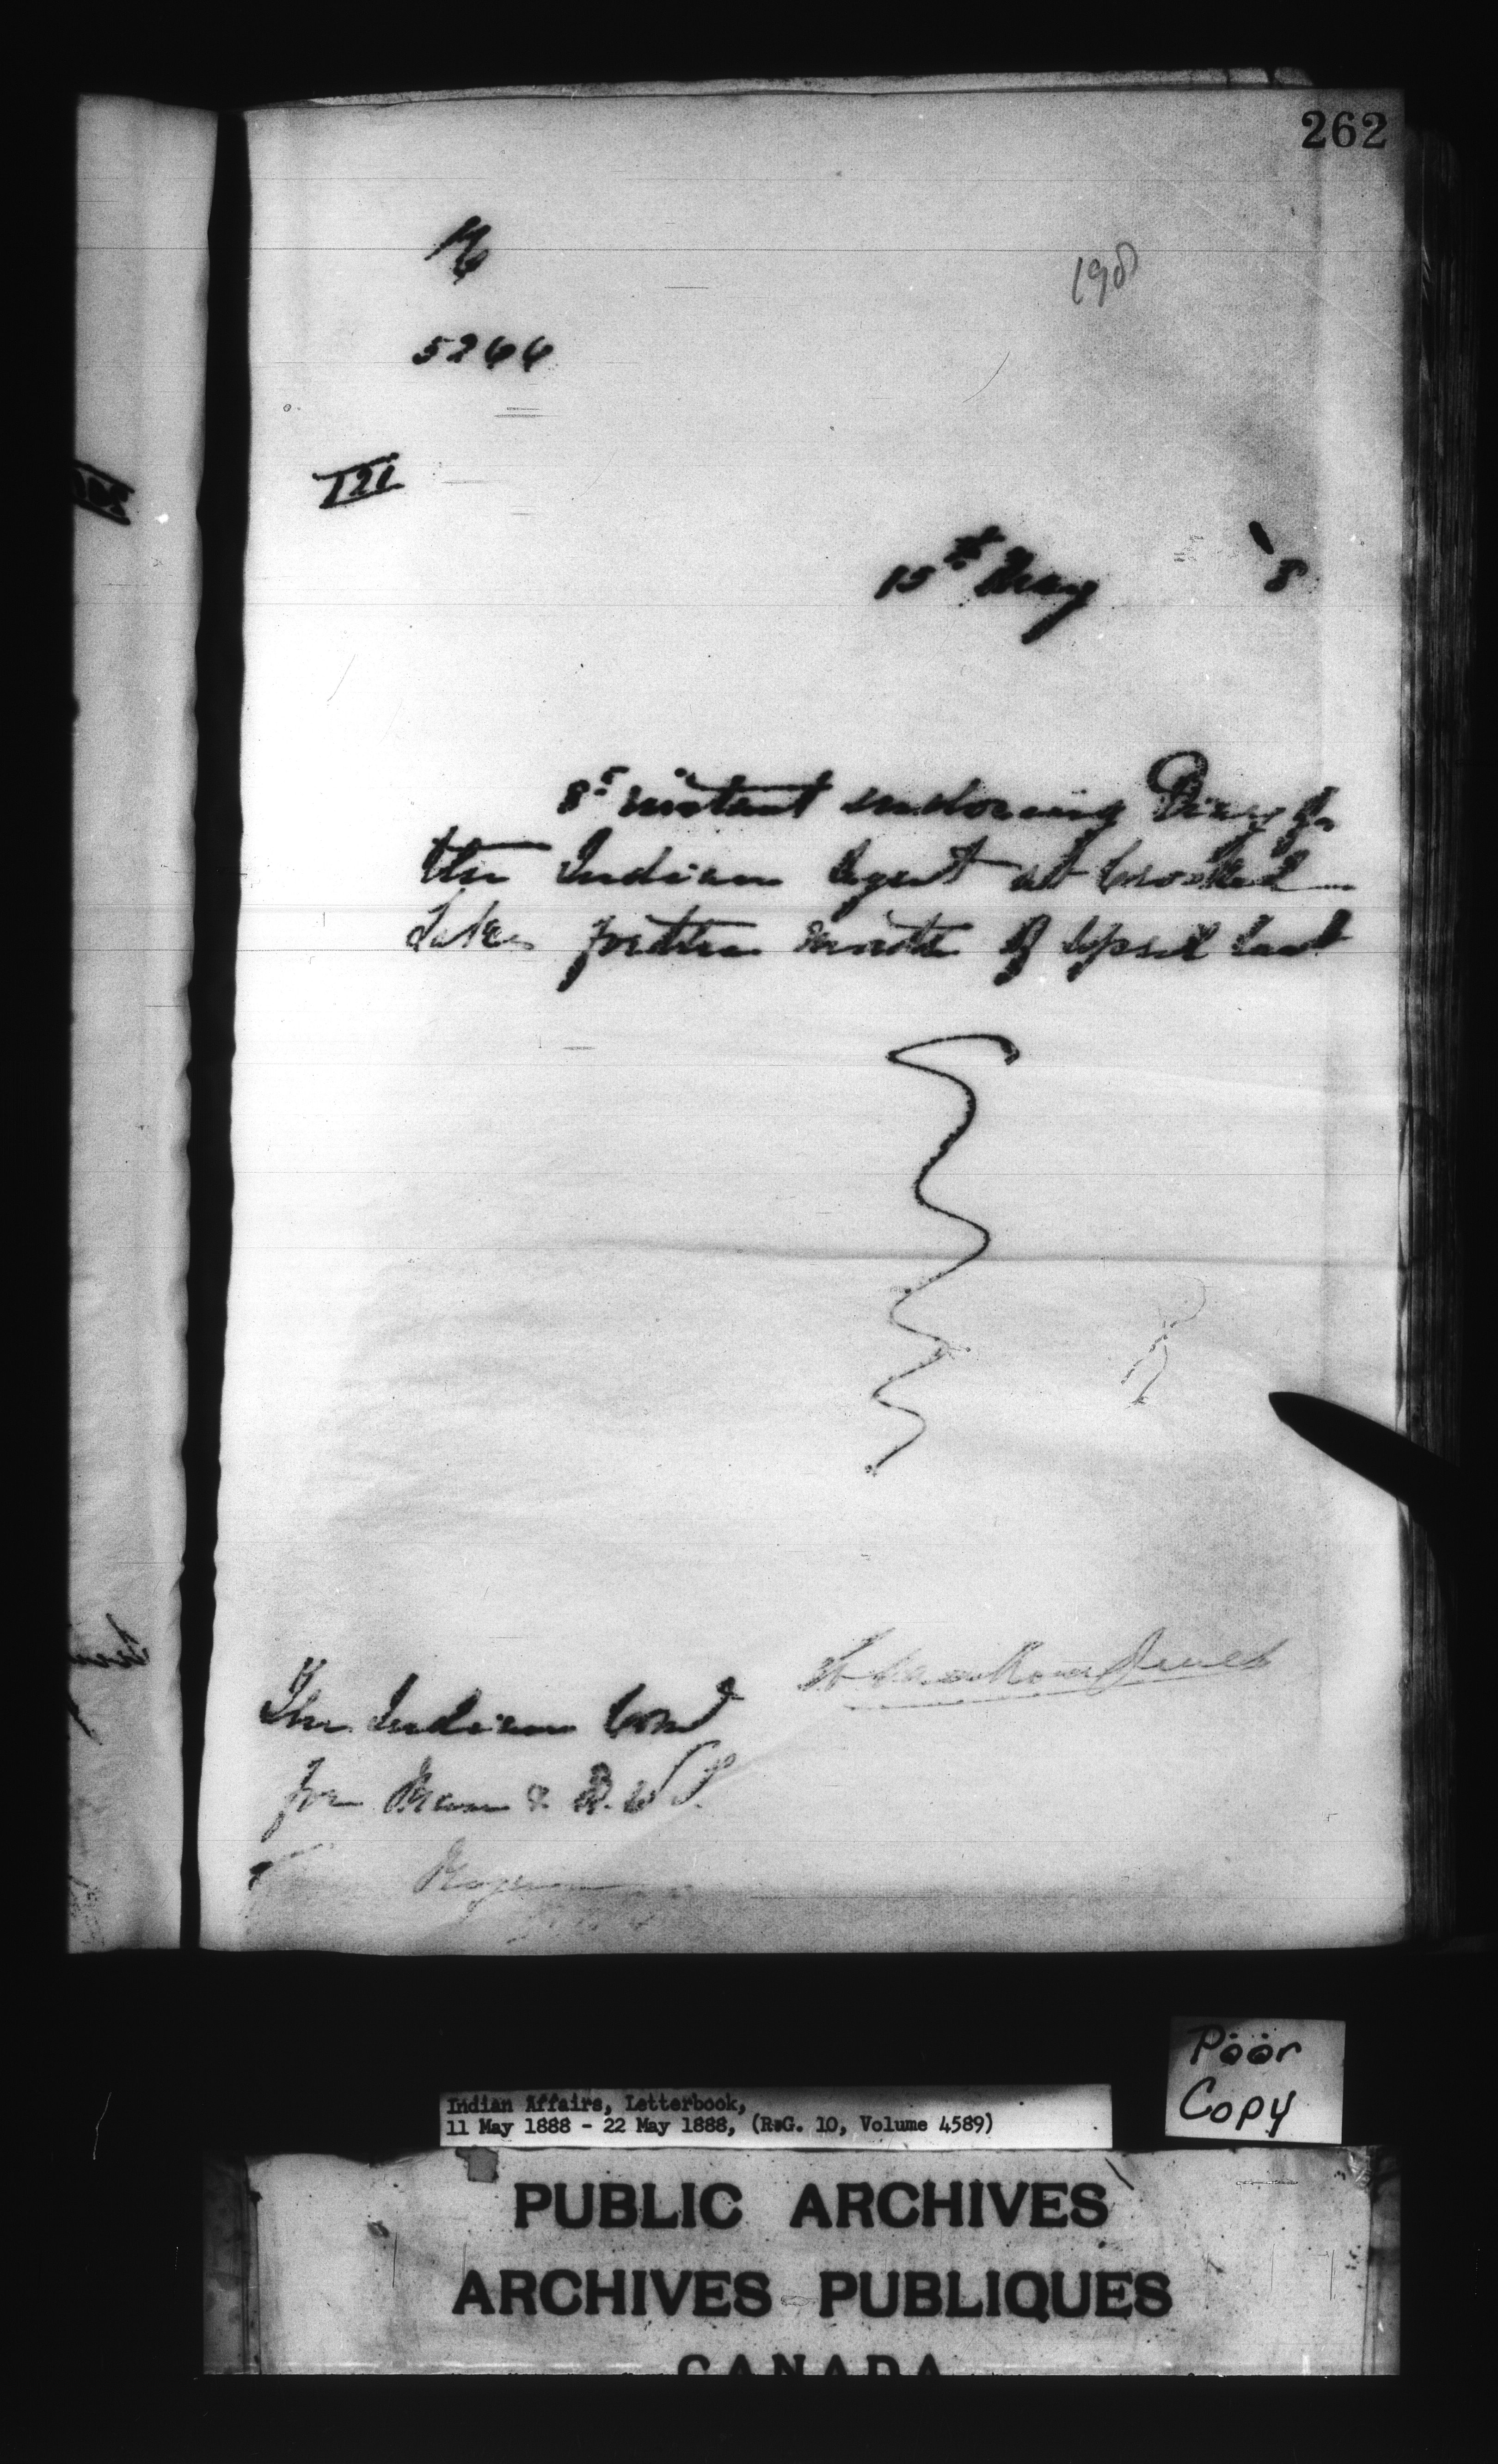 262
198
5266
15th May 8
8th instant enclosing Diary of
the Indian Agent at Crooked
Lakes for the month of April last
The Indian Comr
for Man & N.W.T.
Regina
Poor
Copy
Indian Affairs, Letterbook,
11 May 1888 - 22 May 1888, (R.G. 10, Volume 4589)
PUBLIC ARCHIVES
ARCHIVES PUBLIQUES
CANADA